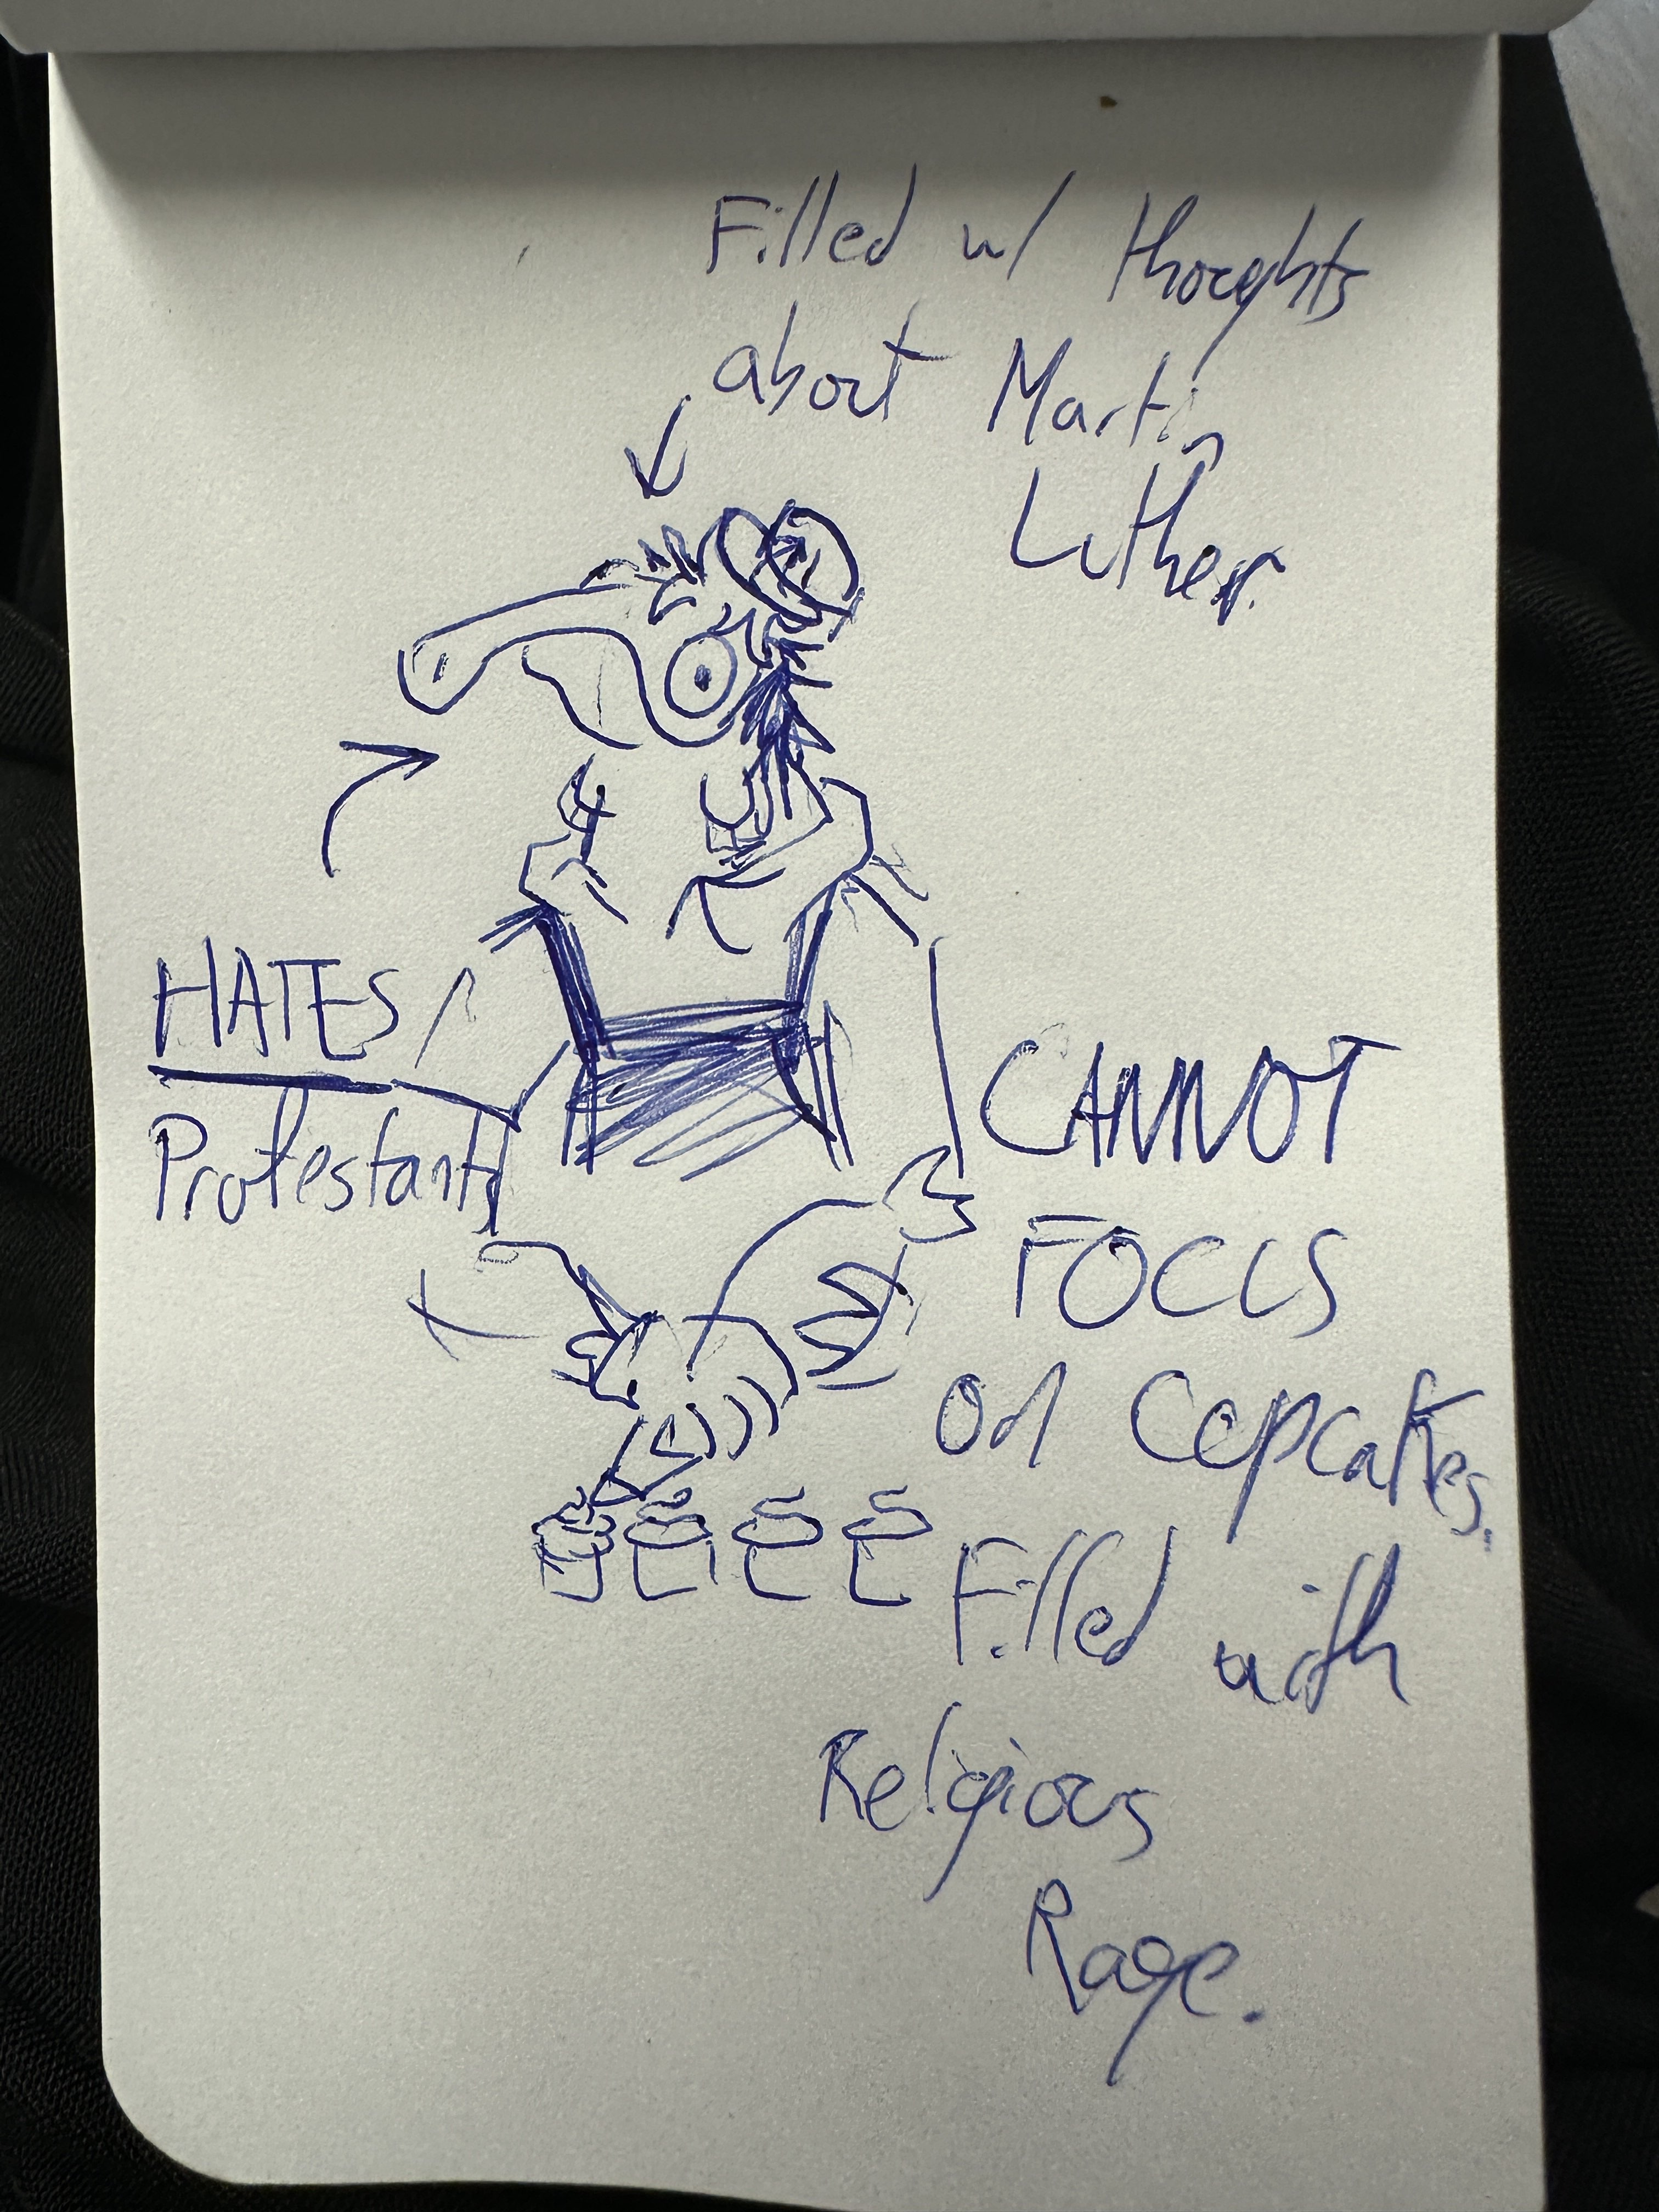 Filled w/ thoughts
about Martin
Luther.
HATES
Protestants
CANNOT
FOCUS
on Cupcakes.
Filled with
Religious
Rage.